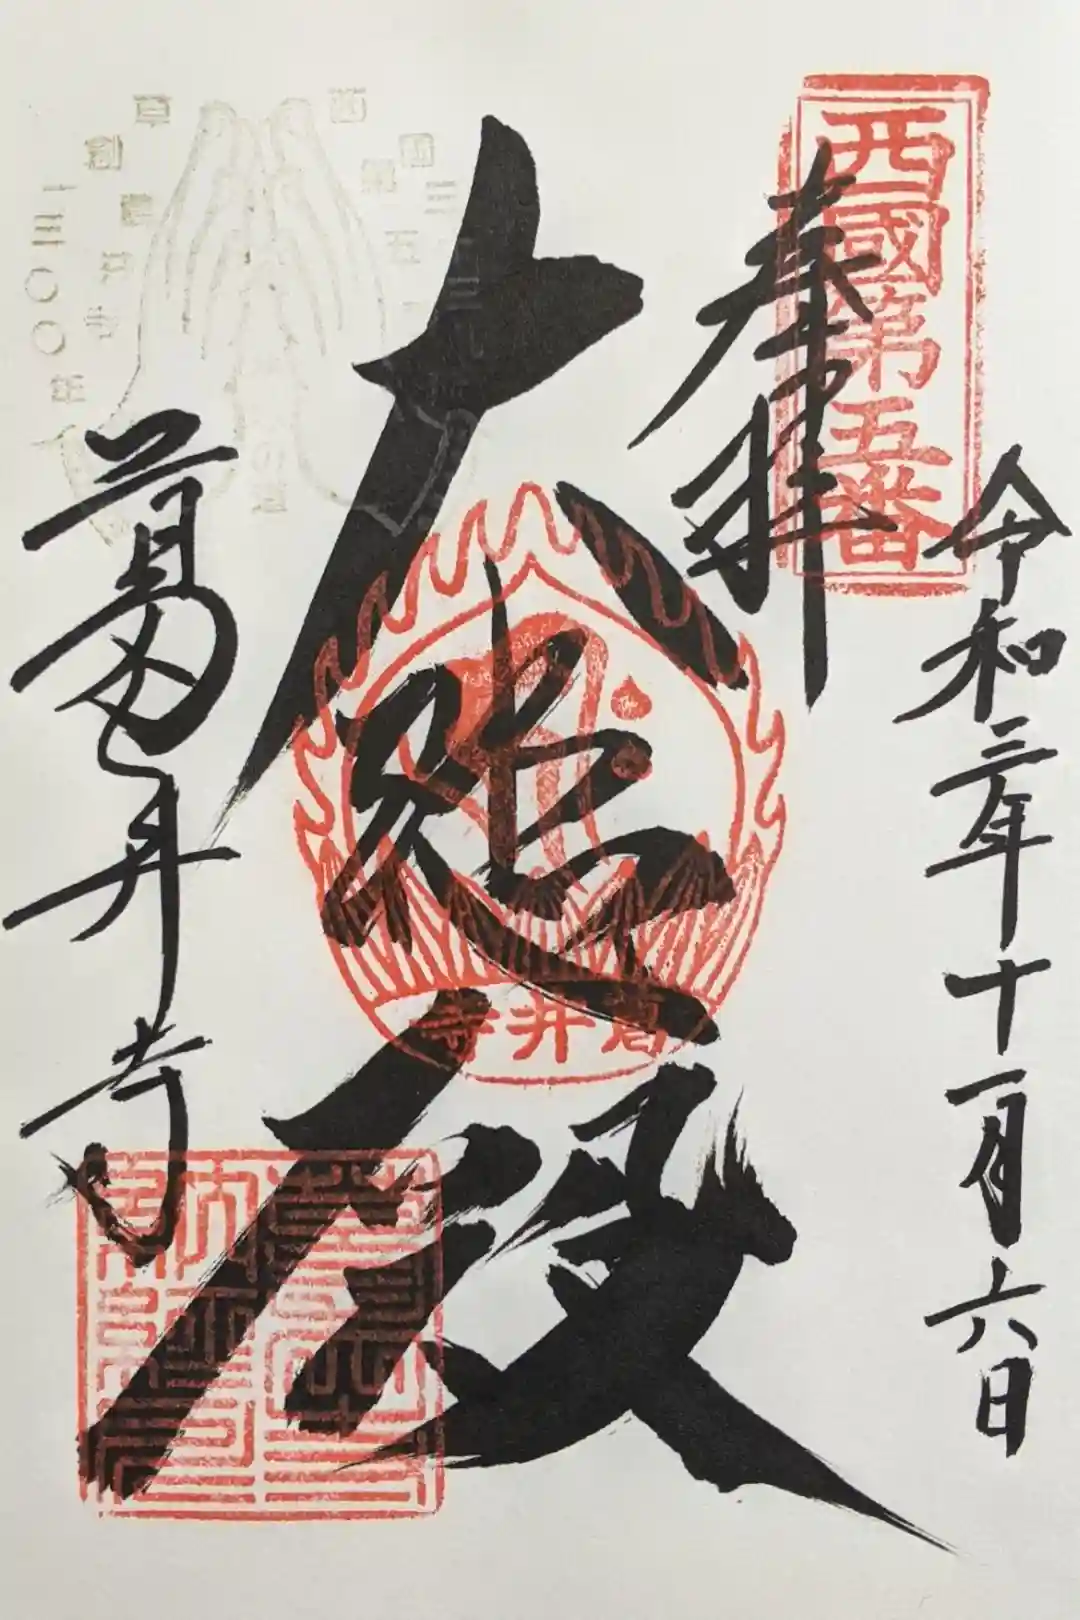 西國第五番
奉拝
令和三年十一月六日
大悲殿
葛井寺
葛井寺
西国三十三所
草創一三〇〇年
第五番
葛井寺